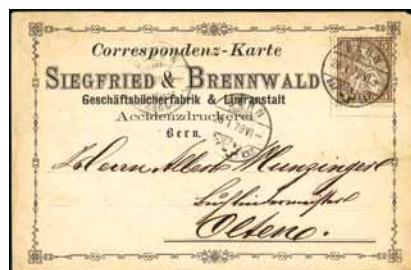 Correspondenz-Karte
SIEGFRIED & BRENNWALD
Geschäftsbücherfabrik & Liniranstalt
Accidenzdruckerei
Bern.
Herrn Albert Munzinger
Buchbindermeister
Olten.
BERN